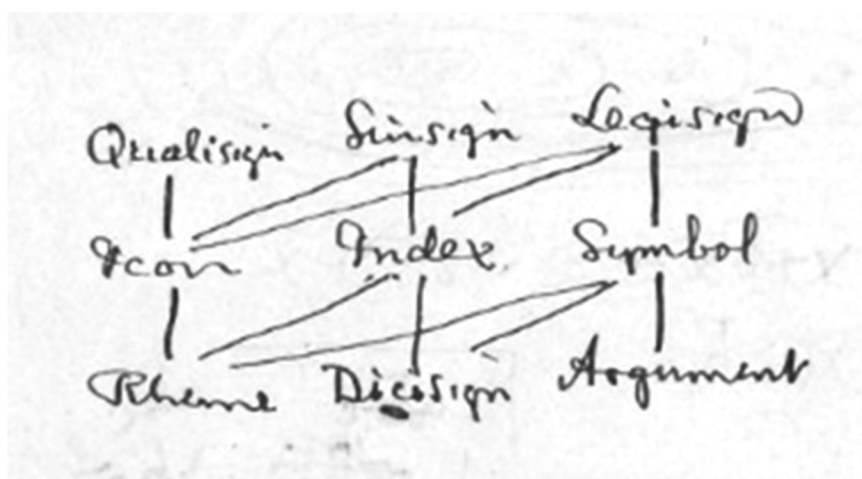 Qualisign Sinsign Legisign
Icon Index Symbol
Rheme Dicisign Argument